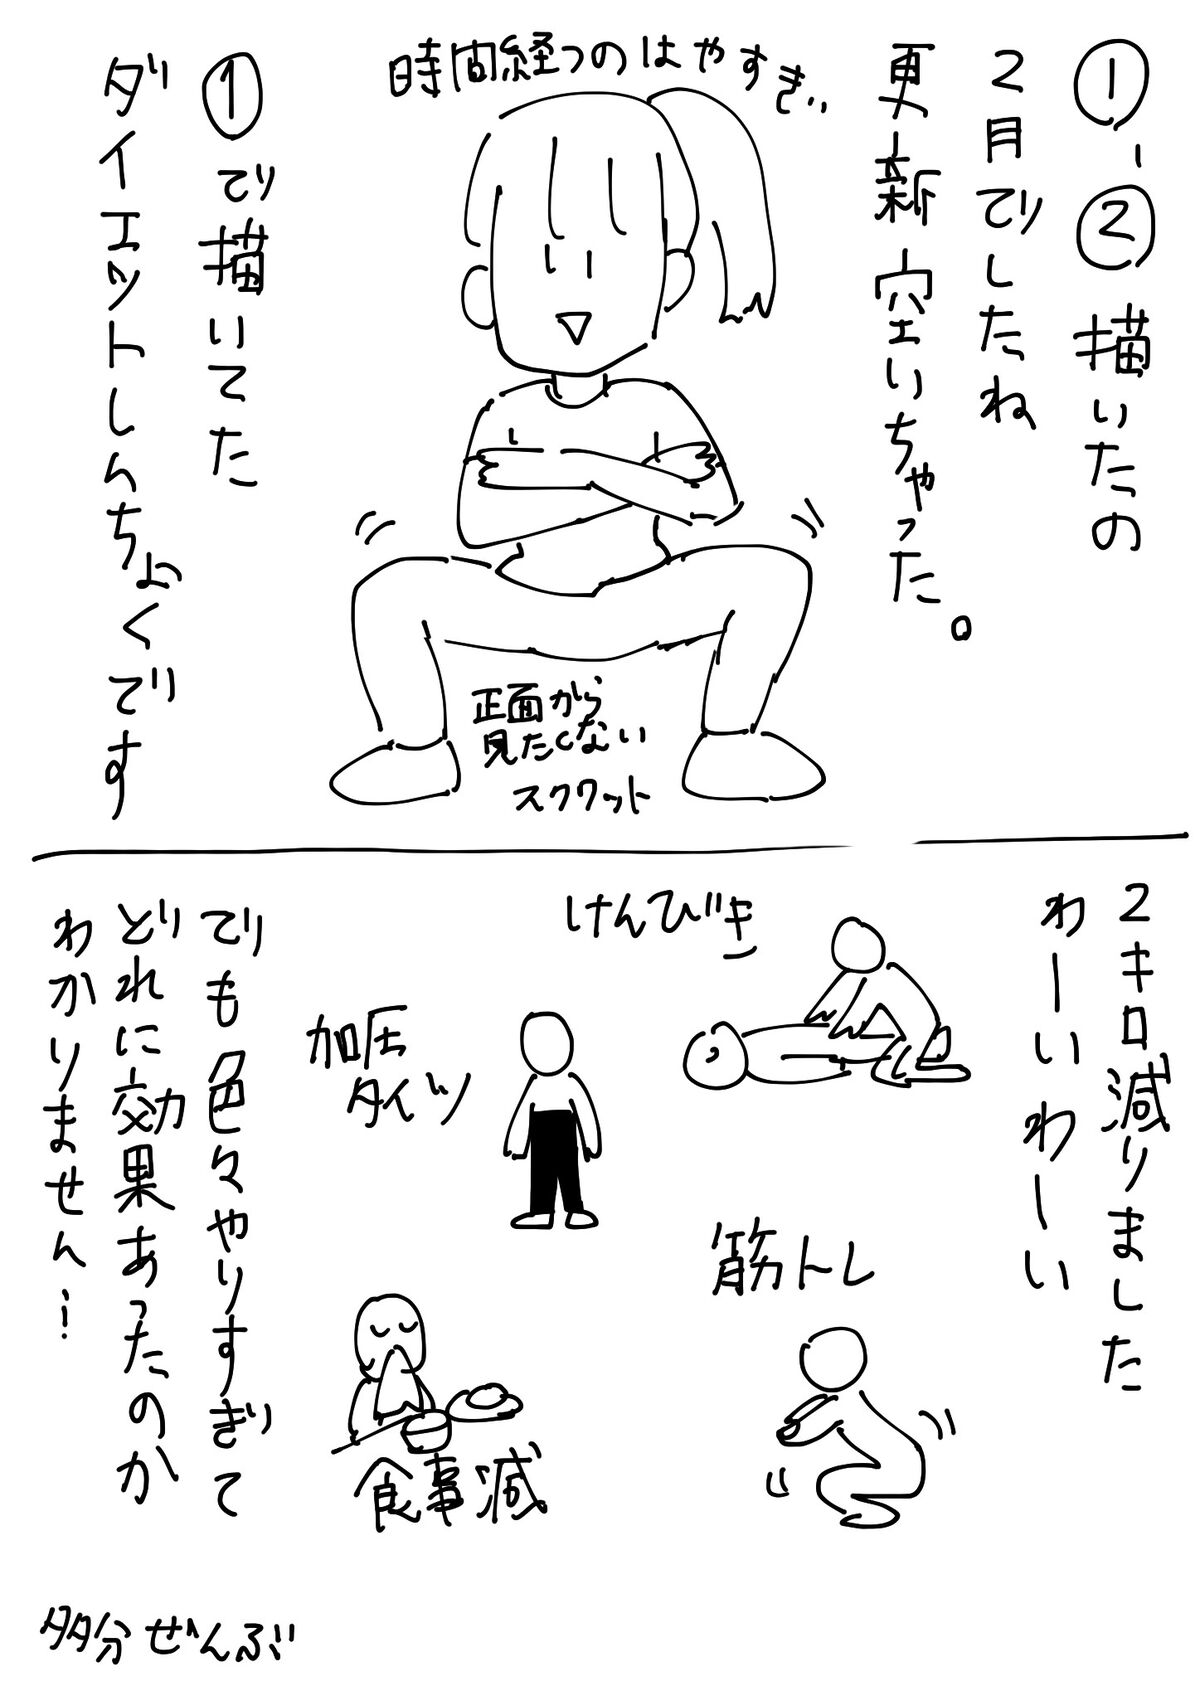 ①、②描いたの
2月でしたね
更新空いちゃった。
時間経つのはやすぎぃ
正面から
見たくない
スクワット
①で描いてた
ダイエットしんちょくです
2キロ減りました
わーいわーい
けんびき
筋トレ
加圧
タイツ
食事減
でも色々やりすぎて
どれに効果あったのか
わかりません…
多分ぜんぶ